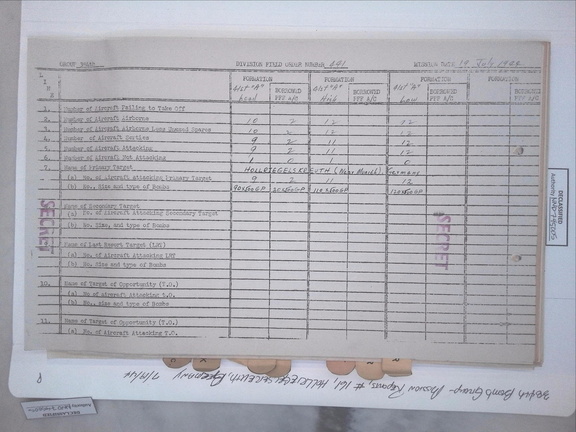 DIVISION FIELD ORDER NUMBER 441
MISSION DATE 19 July 1944
LINE
FORMATION FORMATION FORMATION FORMATION
41st "A" Lead BORROWED PFF A/C 41st "A" High BORROWED PFF A/C 41st "A" Low BORROWED PFF A/C BORROWED PFF A/C
1. Number of Aircraft Failing to Take Off
2. Number of Aircraft Airborne 10 2 12 12
3. Number of Aircraft Airborne Less Unused Spares 10 2 12 12
4. Number of Aircraft Sorties 9 2 11 12
5. Number of Aircraft Attacking 9 2 11 12
6. Number of Aircraft Not Attacking 1 0 1 0
7. Name of Primary Target HOLLRIEGELSKREUTH (Near Munich) Germany
(a) No. of Aircraft Attacking Primary Target 9 2 11 12
(b) No., Size and type of Bombs
Name of Secondary Target
(a) No. of Aircraft Attacking Secondary Target
(b) No. Size, and type of Bombs
Name of Last Resort Target (LRT)
(a) No. of Aircraft Attacking LRT
(b) No. Size and type of Bombs
10. Name of Target of Opportunity (T.O.)
(a) No of Aircraft Attacking T.O.
(b) No., size and type of Bombs
11. Name of Target of Opportunity (T.O.)
(a) No. of Aircraft Attacking T.O.
SECRET
SECRET
DECLASSIFIED
Authority
384th Bomb Group - Mission Reports, #161, HOLLRIEGELSKREUTH, Germany 7/19/44
DECLASSIFIED